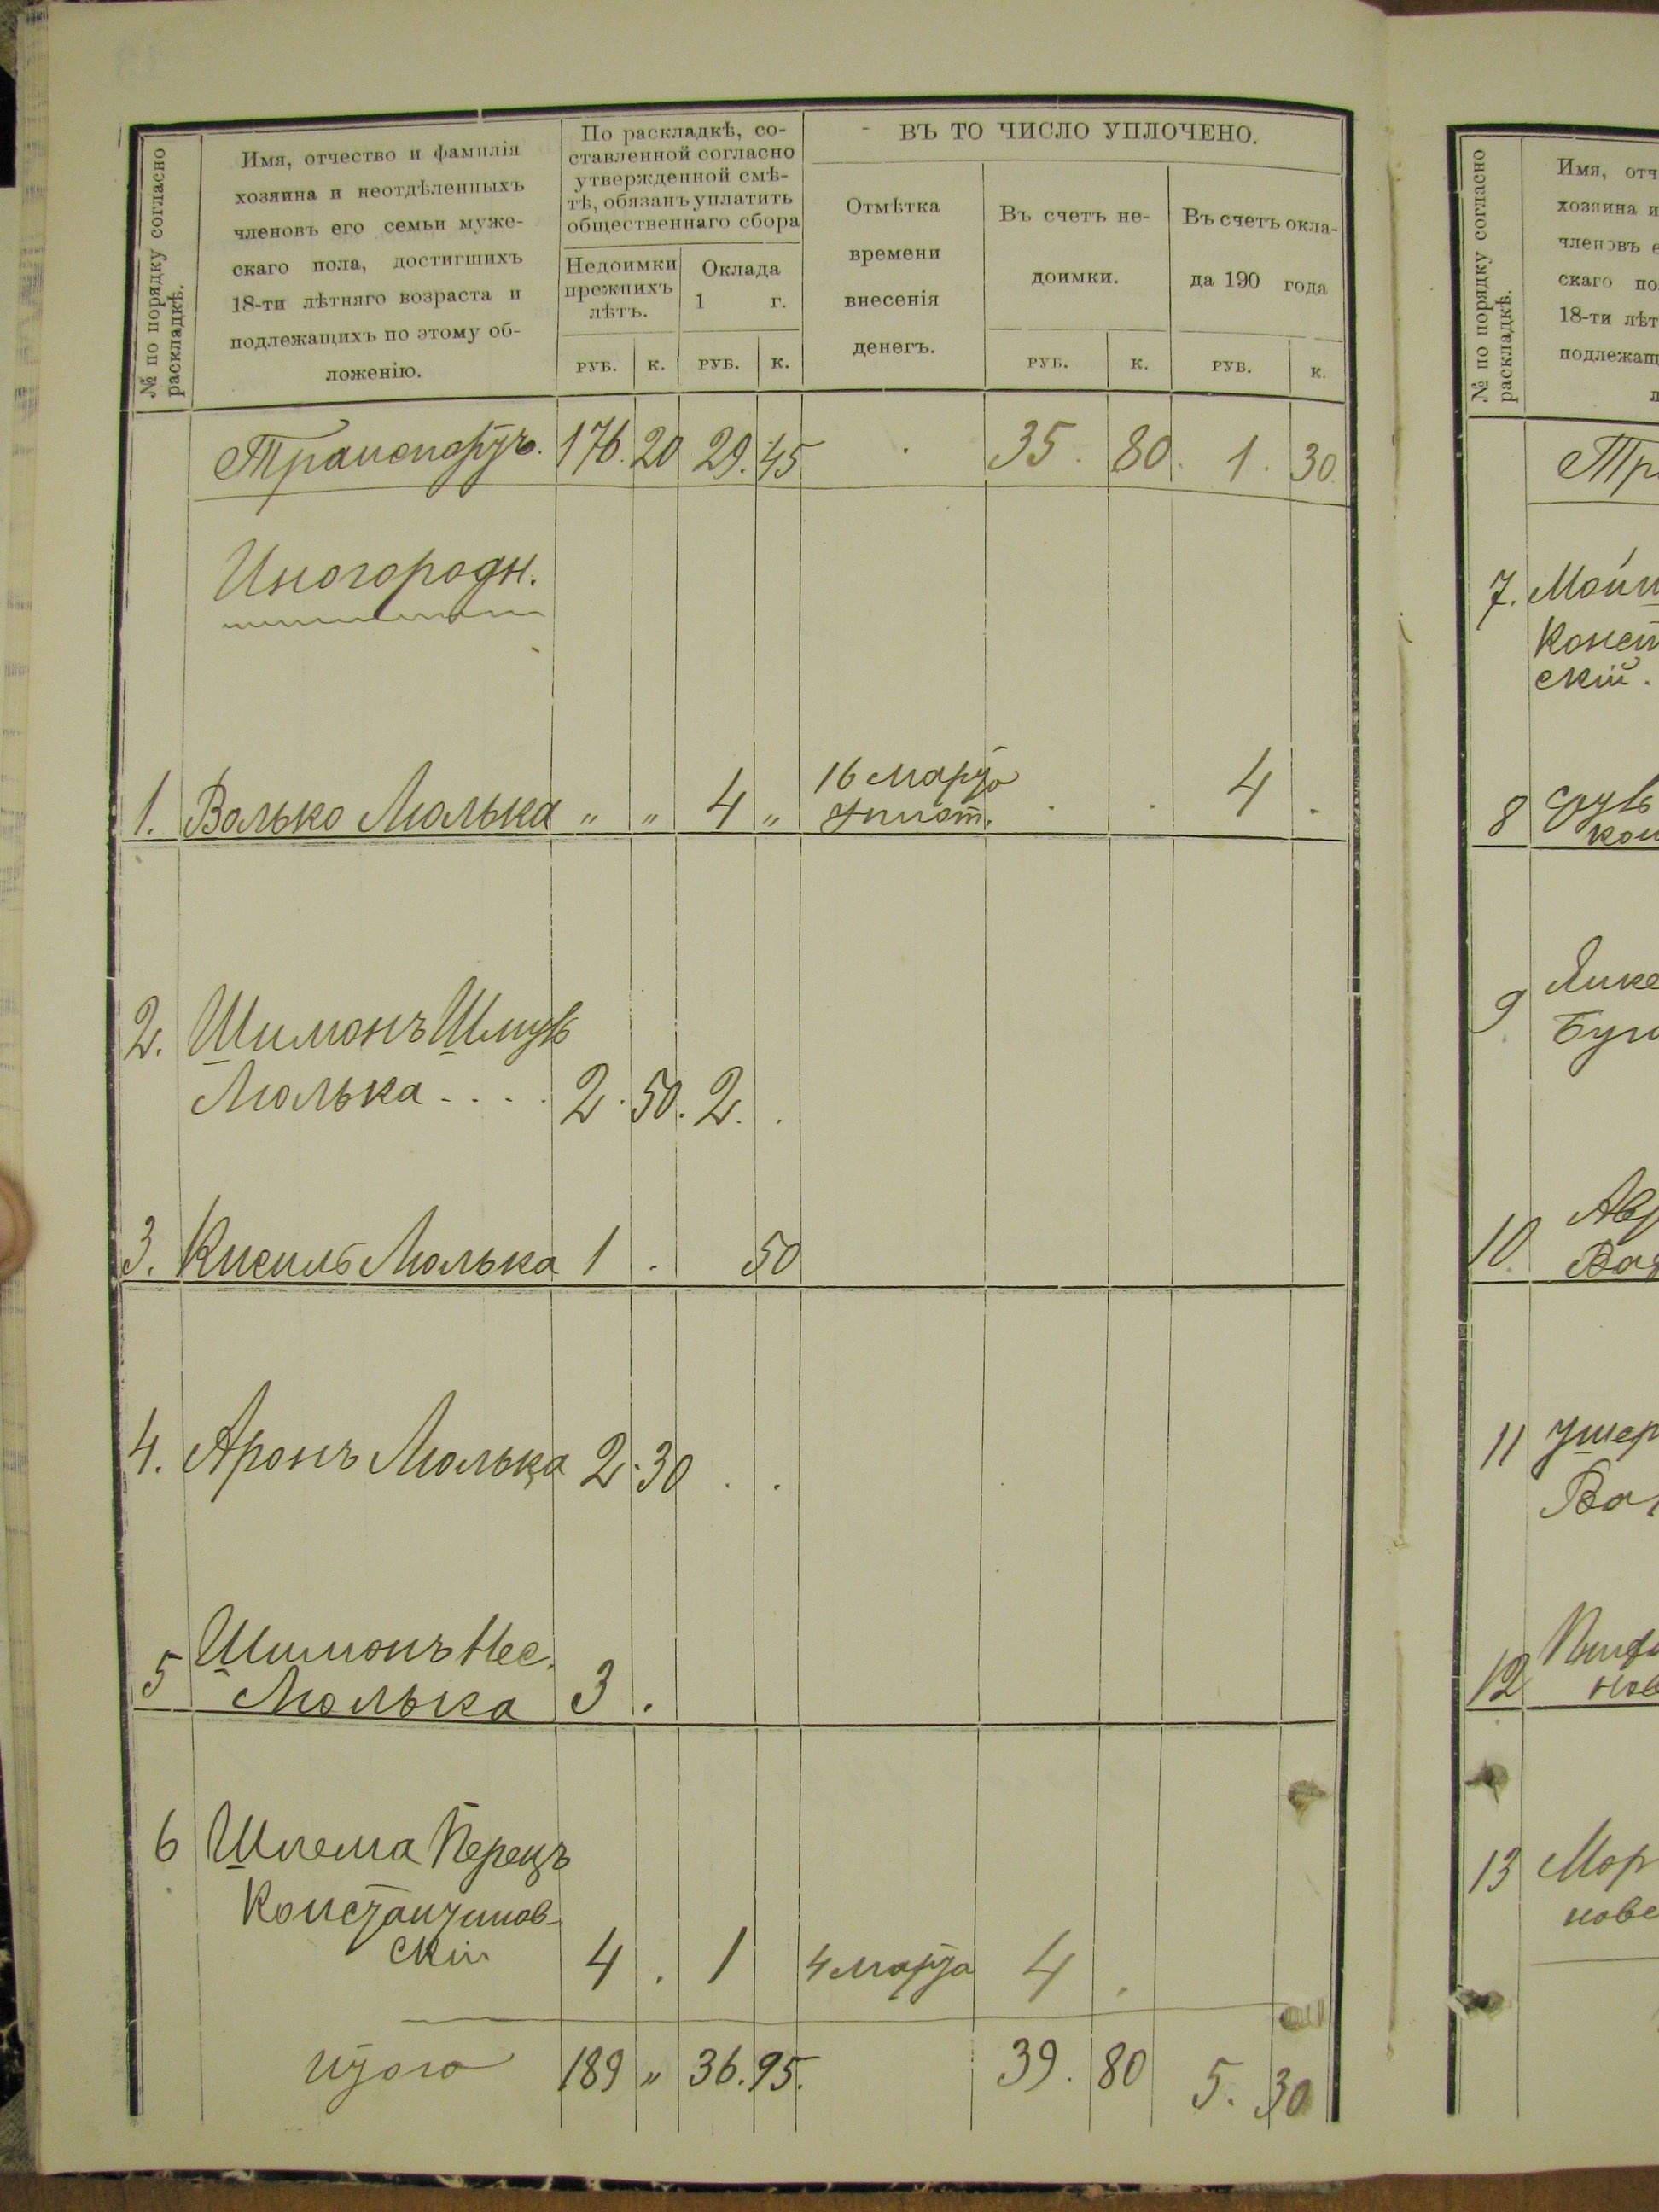 № по порядку согласно
раскладкѣ.
Имя, отчество и фамилія
хозяина и неотдѣленныхъ
членовъ его семьи муже-
скаго пола, достигшихъ
18-ти лѣтняго возраста и
подлежащихъ по этому об-
ложенію.
По раскладкѣ, со-
ставленной согласно
утвержденной смѣ-
тѣ, обязанъ уплатить
общественнаго сбора
Недоимки
прежнихъ
лѣтъ.
Оклада
1 г.
РУБ. К. РУБ. К.
ВЪ ТО ЧИСЛО УПЛОЧЕНО.
Отмѣтка
времени
внесенія
денегъ.
Въ счетъ не-
доимки.
РУБ. К.
Въ счетъ окла-
да 190 года
РУБ. К.
Транспортъ. 176. 20 29. 45 35. 80. 1. 30
Иногородн.
1. Волько Люлька „ „ 4 „ 16 марта 4
2. Шимонъ
Люлька . . . . 2. 50. 2.
3. Кисиль Люлька 1 . 50
4. Аронъ Люлька 2. 30 . .
5 Шимонъ Нес.
Люлька 3 .
6 Шлема Перецъ
Константинов-
скій 4 . 1 4 марта 4 .
Итого 189 „ 36. 95. 39. 80 5. 30
№ по порядку согласно
раскладкѣ.
Имя, отч
хозяина и
членовъ е
скаго по
18-ти лѣт
подлежащ
Тр
7.
Конст
скій.
8
9
10
11 Ушер
12
13 Мор
новс